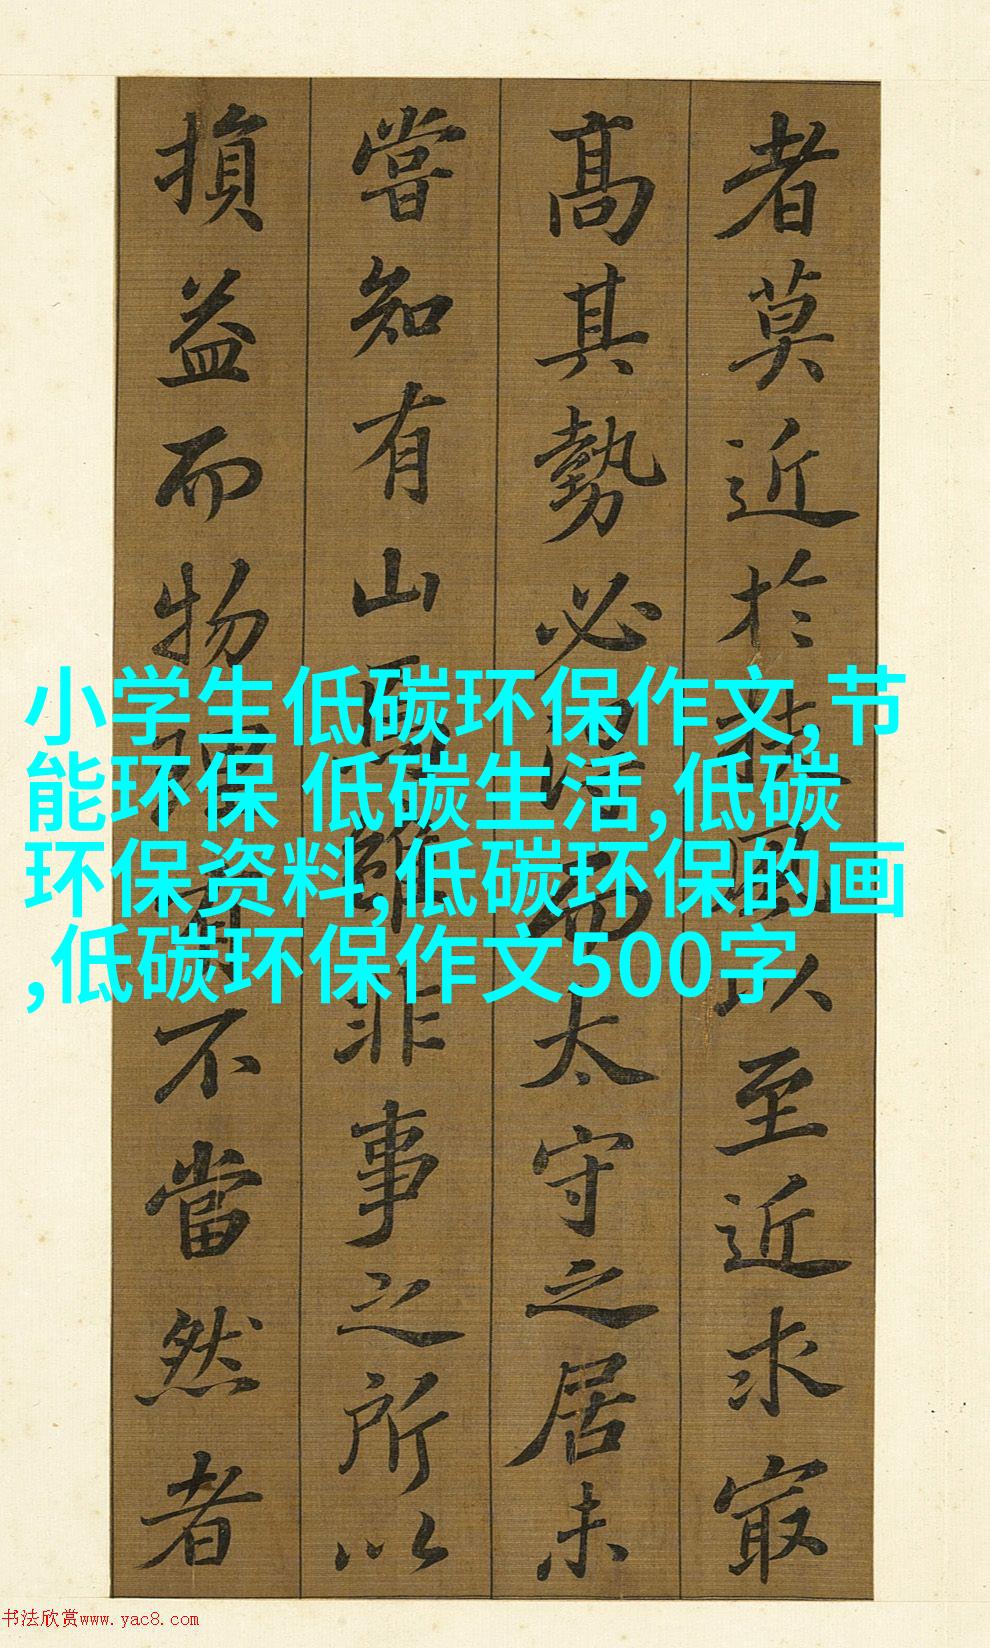 者莫近於扶風以至近求㝡
髙其勢必得而太守之居未
嘗知有山焉雖非事之所以
損益而物理有不當然者
小学生低碳环保作文,节
能环保 低碳生活,低碳
环保资料,低碳环保的画
,低碳环保作文500字
书法欣赏www.yac8.com